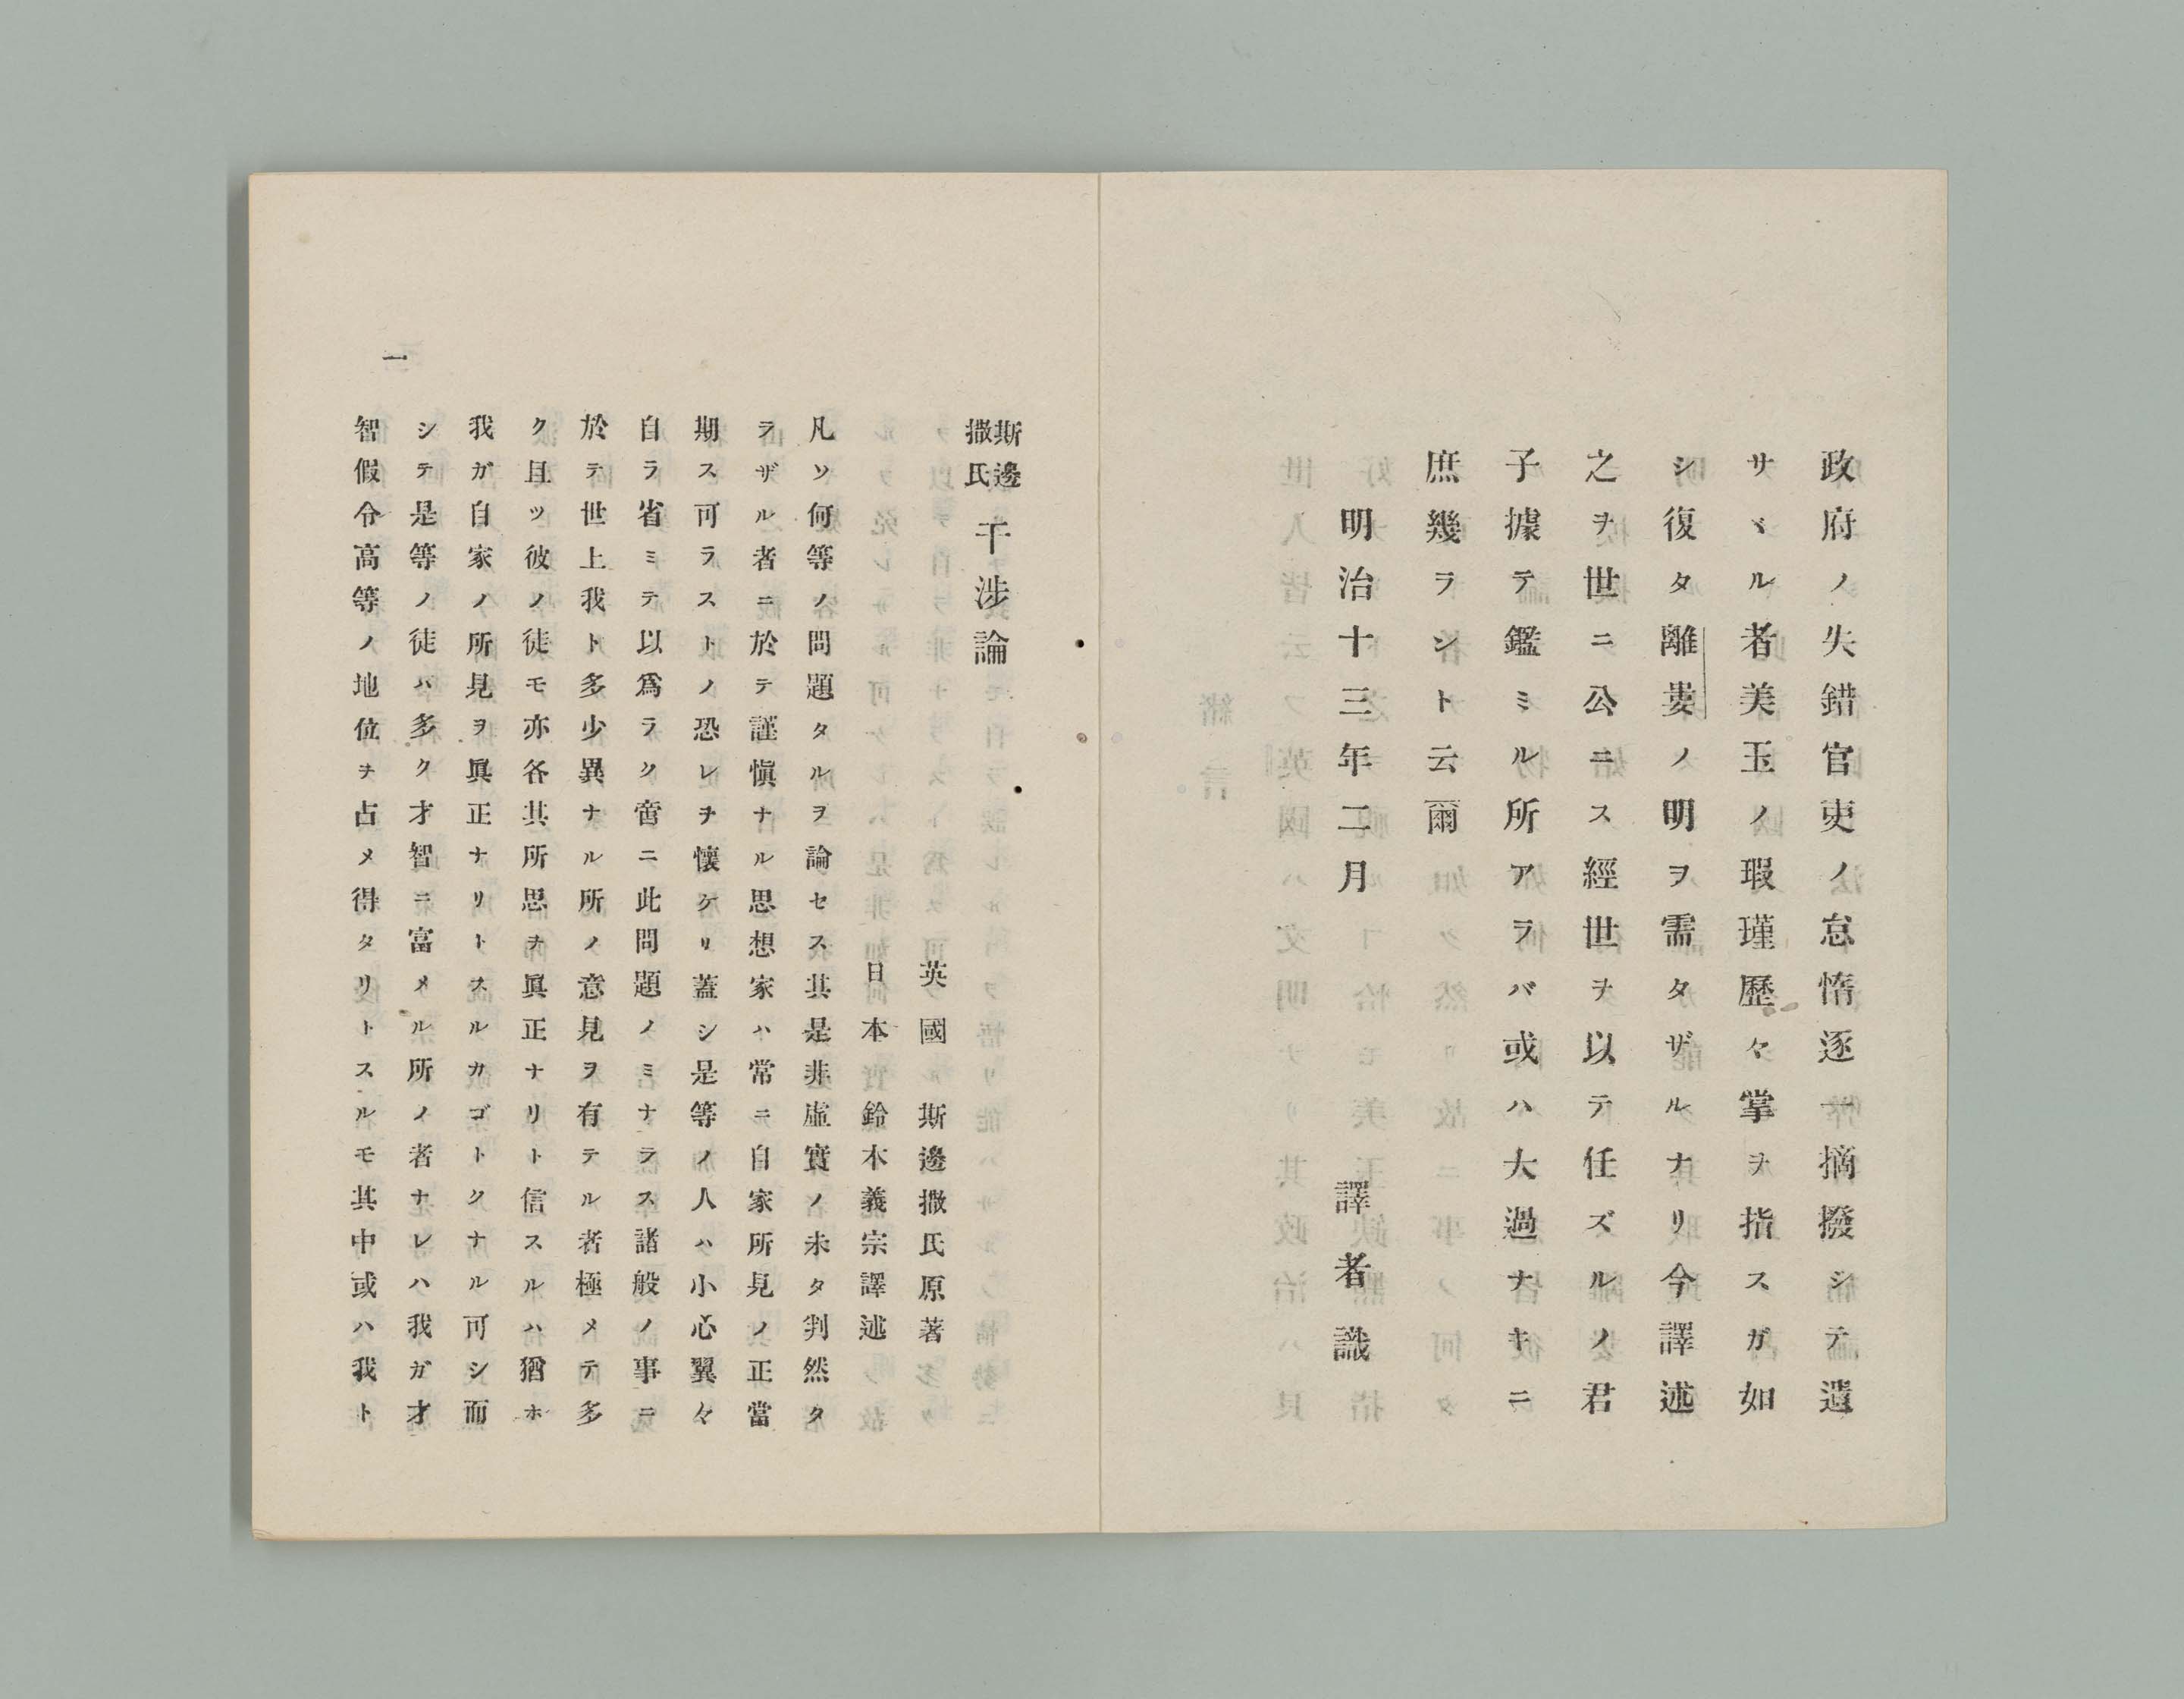 政府ノ失錯官吏ノ怠惰逐一摘撥シテ遺
サヾル者美玉ノ瑕瑾歷々掌ヲ指スガ如
シ復タ離婁ノ明ヲ需タザルナリ今譯述
之ヲ世ニ公ニス經世ヲ以テ任ズルノ君
子據テ鑑ミル所アラバ或ハ大過ナキニ
庶幾ラシト云爾
明治十三年二月
譯者識
斯邊撒氏干涉論
英國 斯邊撒氏原著
日本 鈴木義宗譯述
凡ソ何等ノ問題タルヲ論セス其是非虛實ノ未タ判然タ
ラザル者ニ於テ謹愼ナル思想家ハ常ニ自家所見ノ正當
期ス可ラストノ恐レヲ懷ケリ蓋シ是等ノ人ハ小心翼々
自ラ省ミテ以爲ラク啻ニ此問題ノミナラス諸般ノ事ニ
於テ世上我ト多少異ナル所ノ意見ヲ有テル者極メテ多
ク且ツ彼ノ徒モ亦各其所思ヲ眞正ナリト信スルハ猶ホ
我ガ自家ノ所見ヲ眞正ナリトスルカゴトクナル可シ而
シテ是等ノ徒ハ多ク才智ニ富メル所ノ者ナレハ我ガ才
智假令高等ノ地位ヲ占メ得タリトスルモ其中或ハ我ト
一